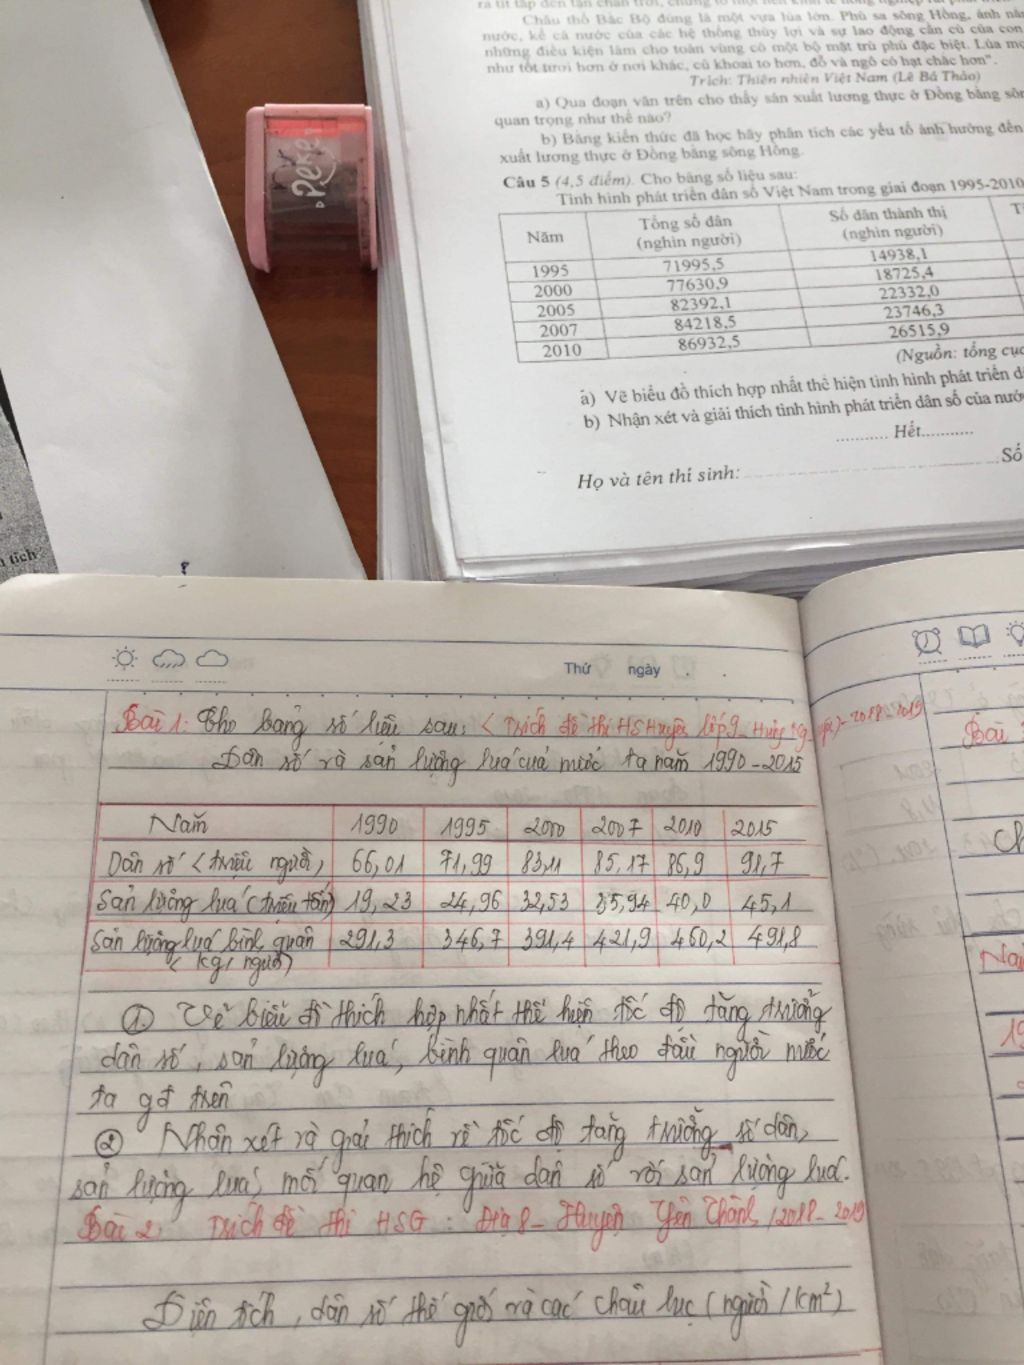 Châu thổ Bắc Bộ đúng là một vựa lúa lớn. Phù sa sông Hồng, ánh
nước, kể cả nước của các hệ thống thủy lợi và sự lao động cần cù của con
những điều kiện làm cho toàn vùng có một bộ mặt trù phú đặc biệt. Lúa
như tốt tươi hơn ở nơi khác, củ khoai to hơn, đỗ và ngô có hạt chắc hơn".
Trích: Thiên nhiên Việt Nam (Lê Bá Thảo)
a) Qua đoạn văn trên cho thấy sản xuất lương thực ở Đồng bằng
quan trọng như thế nào?
b) Bằng kiến thức đã học hãy phân tích các yếu tố ảnh hưởng đến
xuất lương thực ở Đồng bằng sông Hồng.
Câu 5 (4,5 điểm). Cho bảng số liệu sau:
Tình hình phát triển dân số Việt Nam trong giai đoạn 1995-2010
Năm Tổng số dân (nghìn người) Số dân thành thị (nghìn người)
1995 71995,5 14938,1
2000 77630,9 18725,4
2005 82392,1 22332,0
2007 84218,5 23746,3
2010 86932,5 26515,9
(Nguồn: tổng cục
a) Vẽ biểu đồ thích hợp nhất thể hiện tình hình phát triển
b) Nhận xét và giải thích tình hình phát triển dân số của
........... Hết...........
Họ và tên thí sinh: Số
tích
Peke
Thứ ngày
Bài 1: Cho bảng số liệu sau: < Trích đề thi HS Huyện lớp 9 - 2018-2019
Dân số và sản lượng lúa của nước ta năm 1990-2015
Năm 1990 1995 2000 2007 2010 2015
Dân số < triệu người) 66,01 71,99 83,11 85,17 86,9 91,7
Sản lượng lúa (triệu tấn) 19,23 24,96 32,53 35,94 40,0 45,1
Sản lượng lúa bình quân 291,3 346,7 391,4 421,9 460,2 491,8
< kg/người)
① Vẽ biểu đồ thích hợp nhất thể hiện tốc độ tăng trưởng
dân số, sản lượng lúa, bình quân lúa theo đầu người nước
ta gđ trên
② Nhận xét và giải thích về tốc độ tăng trưởng số dân,
sản lượng lúa, mối quan hệ giữa dân số với sản lượng lúa.
Bài 2: Trích đề thi HSG: Địa 8 - Huyện Yên Thành /2018-2019
Diện tích, dân số thế giới và các châu lục (người/km²)